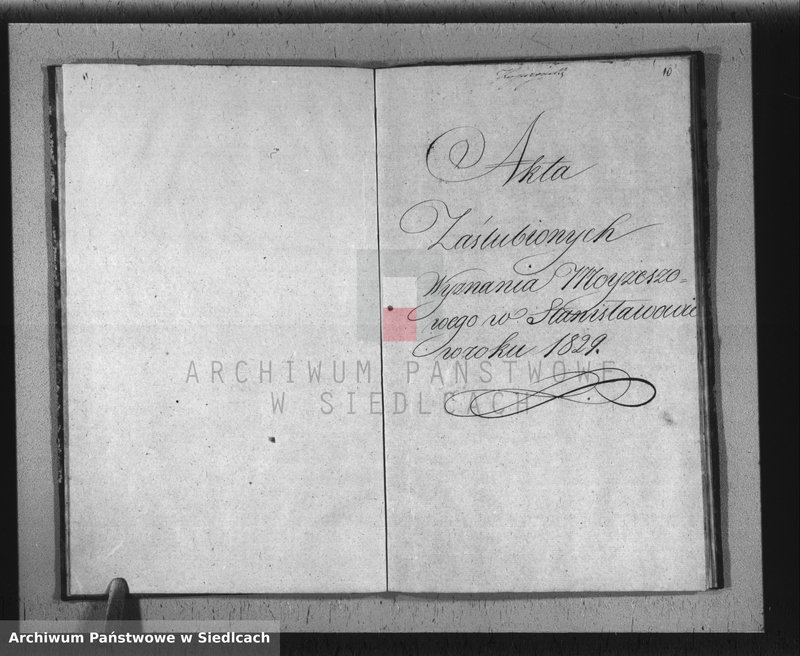 10
Akta
Zaślubionych
Wyznania Moyżeszo=
wego w Stanisławowie
w roku 1829.
ARCHIWUM PAŃSTWOWE
W SIEDLCACH
Archiwum Państwowe w Siedlcach